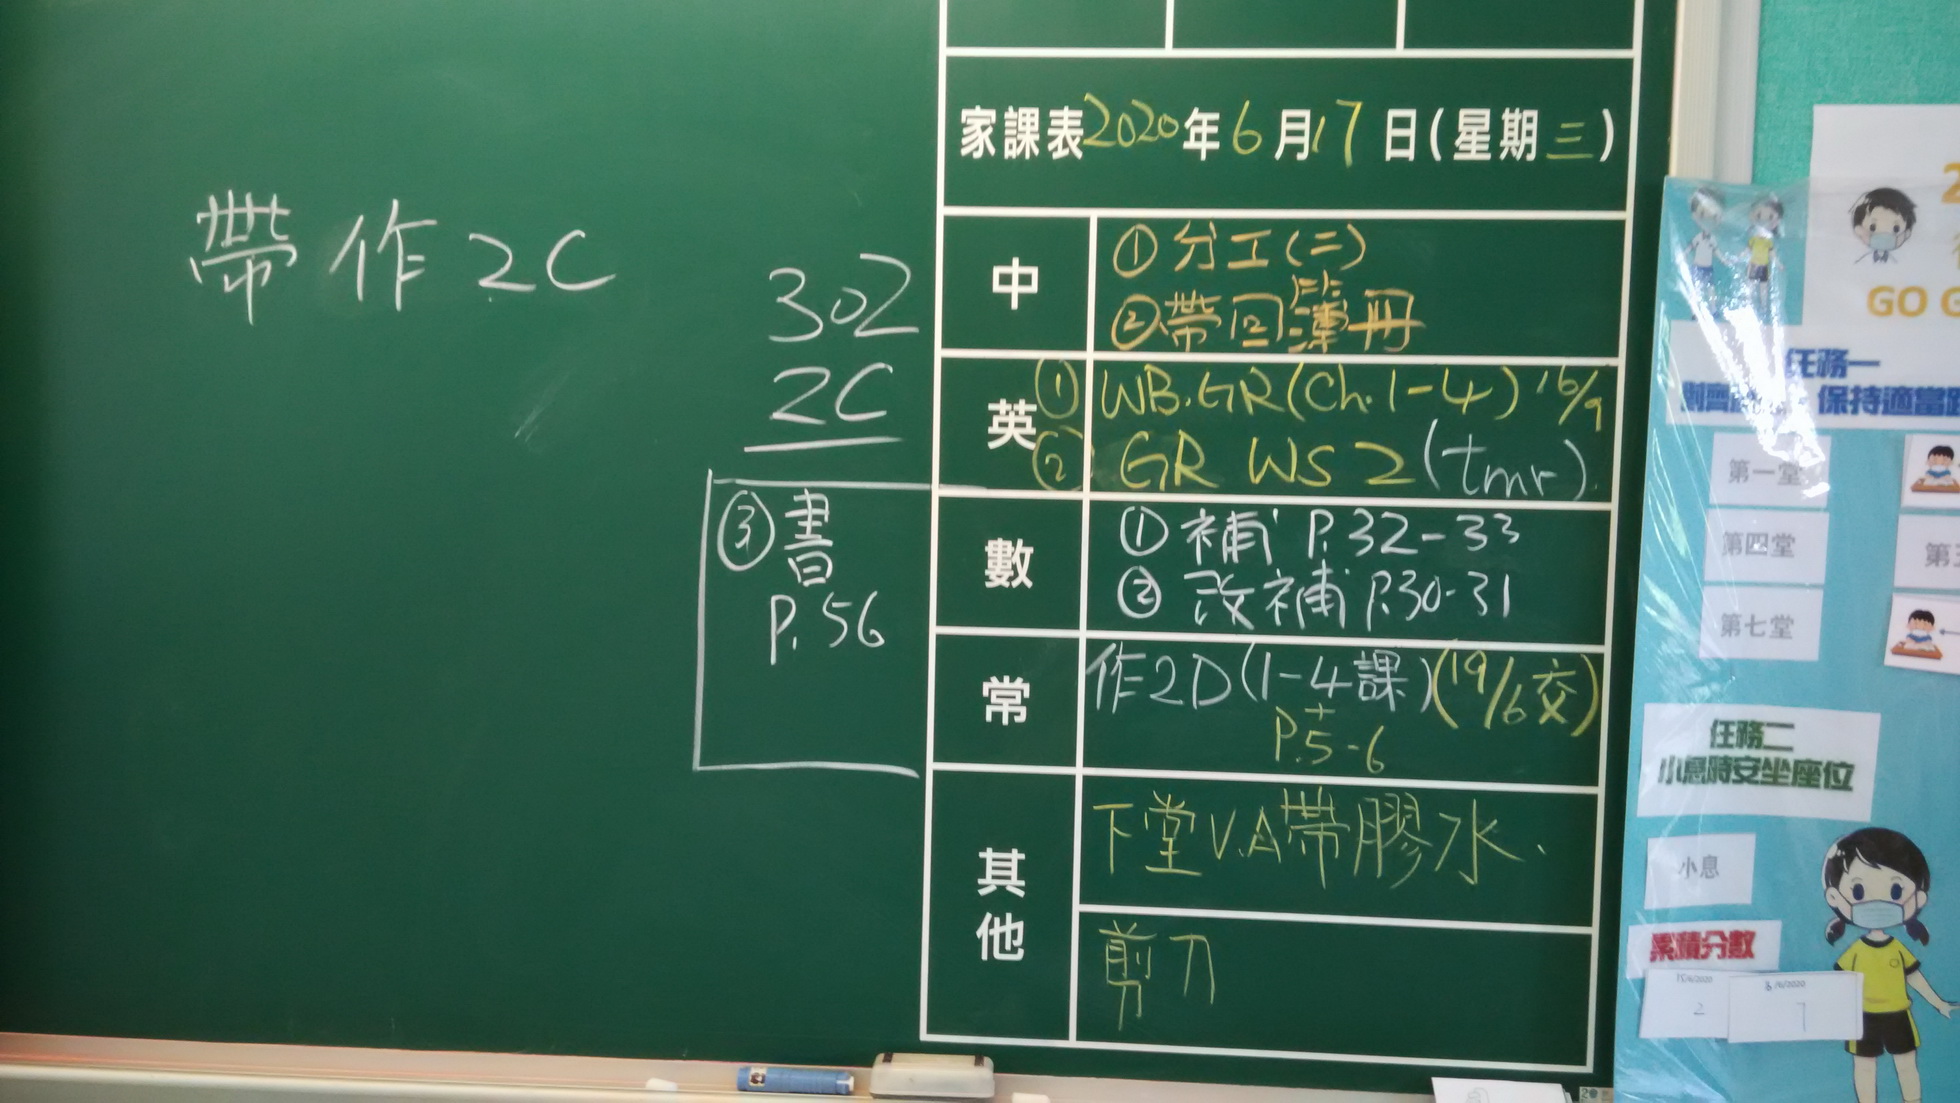 帶作2C
302
2C
③書
P.56
家課表2020年6月17日(星期三)
中
①分工(二)
②帶回簿冊
英
① WB.GR(Ch.1-4) 16/9
② GR WS 2 (tmr)
數
① 補 P.32-33
② 改補 P.30-31
常
作2D(1-4課)(19/6交)
+
P.5-6
其他
下堂V.A帶膠水、
剪刀
GO G
任務一
保持適當距
第一堂
第四堂
第七堂
任務二
小息時安坐座位
小息
累積分數
15/6/2020
2
16/6/2020
7